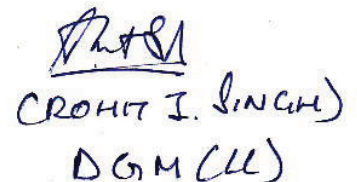 (ROHIT J. SINGH)
DGM (LL)